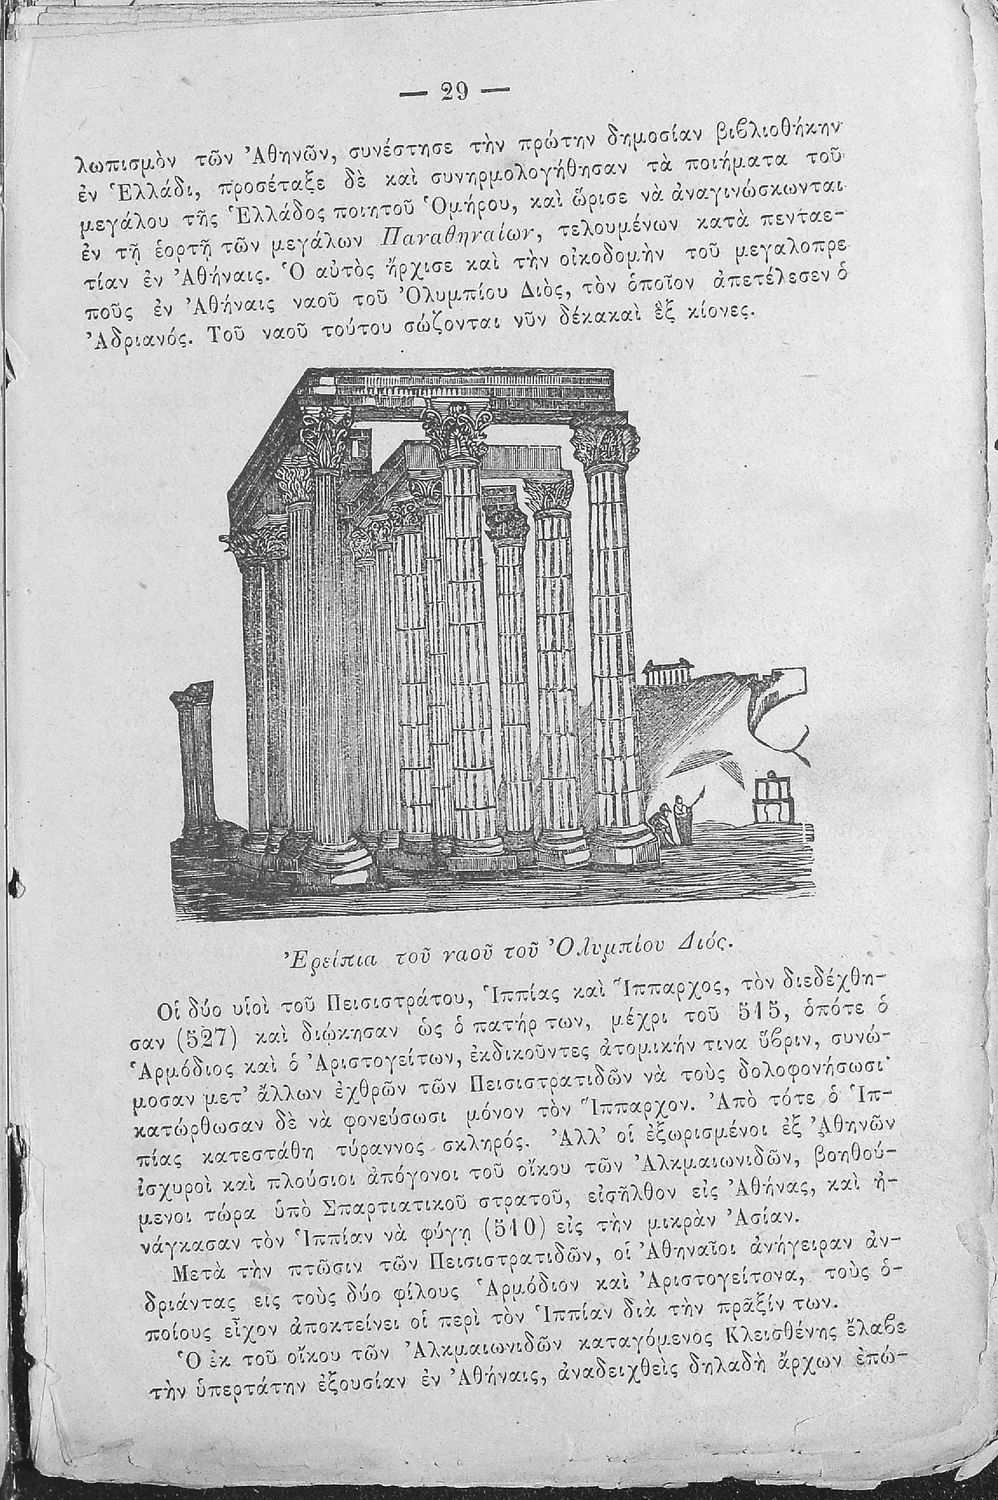 — 29 —
λωπισμὸν τῶν Ἀθηνῶν, συνέστησε τὴν πρώτην δημοσίαν βιβλιοθήκην
ἐν Ἑλλάδι, προσέταξε δὲ καὶ συνηρμολογήθησαν τὰ ποιήματα τοῦ
μεγάλου τῆς Ἑλλάδος ποιητοῦ Ὁμήρου, καὶ ὥρισε νὰ ἀναγινώσκωνται
ἐν τῇ ἑορτῇ τῶν μεγάλων Παναθηναίων, τελουμένων κατὰ πενταε-
τίαν ἐν Ἀθήναις. Ὁ αὐτὸς ἤρχισε καὶ τὴν οἰκοδομὴν τοῦ μεγαλοπρε
ποῦς ἐν Ἀθήναις ναοῦ τοῦ Ὀλυμπίου Διὸς, τὸν ὁποῖον ἀπετέλεσεν ὁ
Ἀδριανός. Τοῦ ναοῦ τούτου σώζονται νῦν δέκακαὶ ἓξ κίονες.
Ἐρείπια τοῦ ναοῦ τοῦ Ὀλυμπίου Διός.
Οἱ δύο υἱοὶ τοῦ Πεισιστράτου, Ἱππίας καὶ Ἵππαρχος, τὸν διεδέχθη-
σαν (527) καὶ διῴκησαν ὡς ὁ πατήρ των, μέχρι τοῦ 515, ὁπότε ὁ
Ἁρμόδιος καὶ ὁ Ἀριστογείτων, ἐκδικοῦντες ἀτομικήν τινα ὕβριν, συνώ-
μοσαν μετ' ἄλλων ἐχθρῶν τῶν Πεισιστρατιδῶν νὰ τοὺς δολοφονήσωσι·
κατώρθωσαν δὲ νὰ φονεύσωσι μόνον τὸν Ἵππαρχον. Ἀπὸ τότε ὁ Ἱπ-
πίας κατεστάθη τύραννος σκληρός. Ἀλλ' οἱ ἐξωρισμένοι ἐξ Ἀθηνῶν
ἰσχυροὶ καὶ πλούσιοι ἀπόγονοι τοῦ οἴκου τῶν Ἀλκμαιωνιδῶν, βοηθού-
μενοι τώρα ὑπὸ Σπαρτιατικοῦ στρατοῦ, εἰσῆλθον εἰς Ἀθήνας, καὶ ἠ-
νάγκασαν τὸν Ἱππίαν νὰ φύγῃ (510) εἰς τὴν μικρὰν Ἀσίαν.
Μετὰ τὴν πτῶσιν τῶν Πεισιστρατιδῶν, οἱ Ἀθηναῖοι ἀνήγειραν ἀν-
δριάντας εἰς τοὺς δύο φίλους Ἁρμόδιον καὶ Ἀριστογείτονα, τοὺς ὁ-
ποίους εἶχον ἀποκτείνει οἱ περὶ τὸν Ἱππίαν διὰ τὴν πρᾶξίν των.
Ὁ ἐκ τοῦ οἴκου τῶν Ἀλκμαιωνιδῶν καταγόμενος Κλεισθένης ἔλαβε
τὴν ὑπερτάτην ἐξουσίαν ἐν Ἀθήναις, ἀναδειχθεὶς δηλαδὴ ἄρχων ἐπώ-